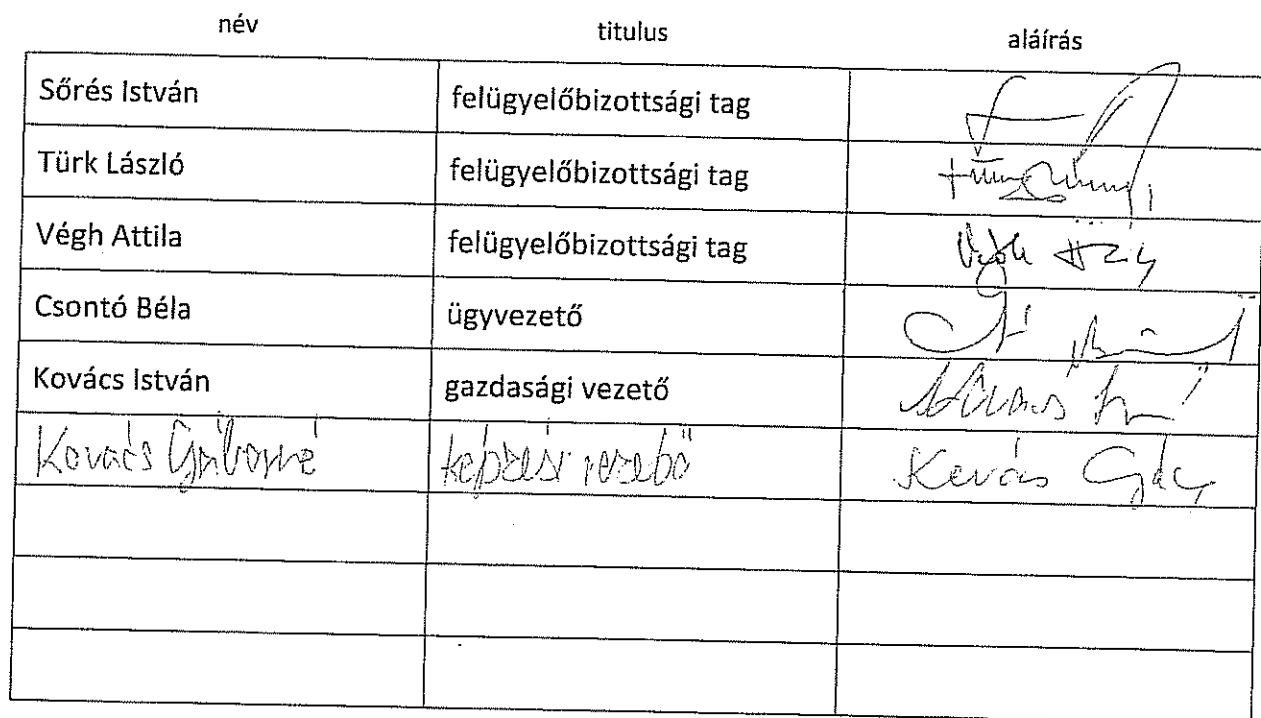 név titulus aláírás
Sőrés István felügyelőbizottsági tag
Türk László felügyelőbizottsági tag
Végh Attila felügyelőbizottsági tag
Csontó Béla ügyvezető
Kovács István gazdasági vezető
Kovács Gáborné képzési vezető Kovács